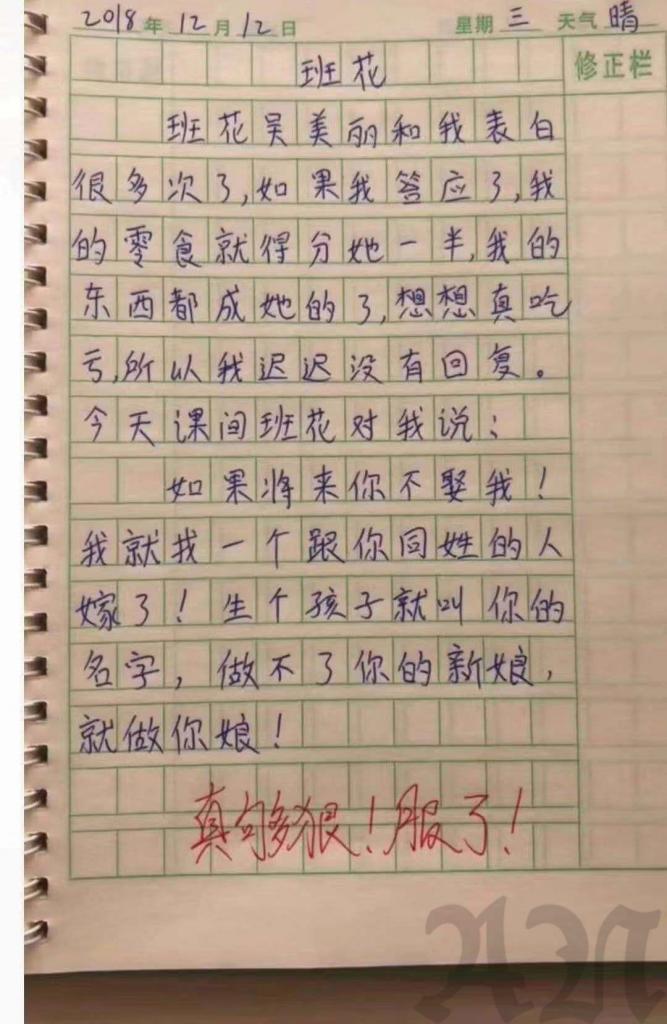 2018年12月12日 星期三 天气晴
修正栏
班花
班花吴美丽和我表白
很多次了,如果我答应了,我
的零食就得分她一半,我的
东西都成她的了,想想真吃
亏,所以我迟迟没有回复。
今天课间班花对我说:
如果将来你不娶我!
我就找一个跟你同姓的人
嫁了!生个孩子就叫你的
名字,做不了你的新娘,
就做你娘!
真句多狠!服了!
AN